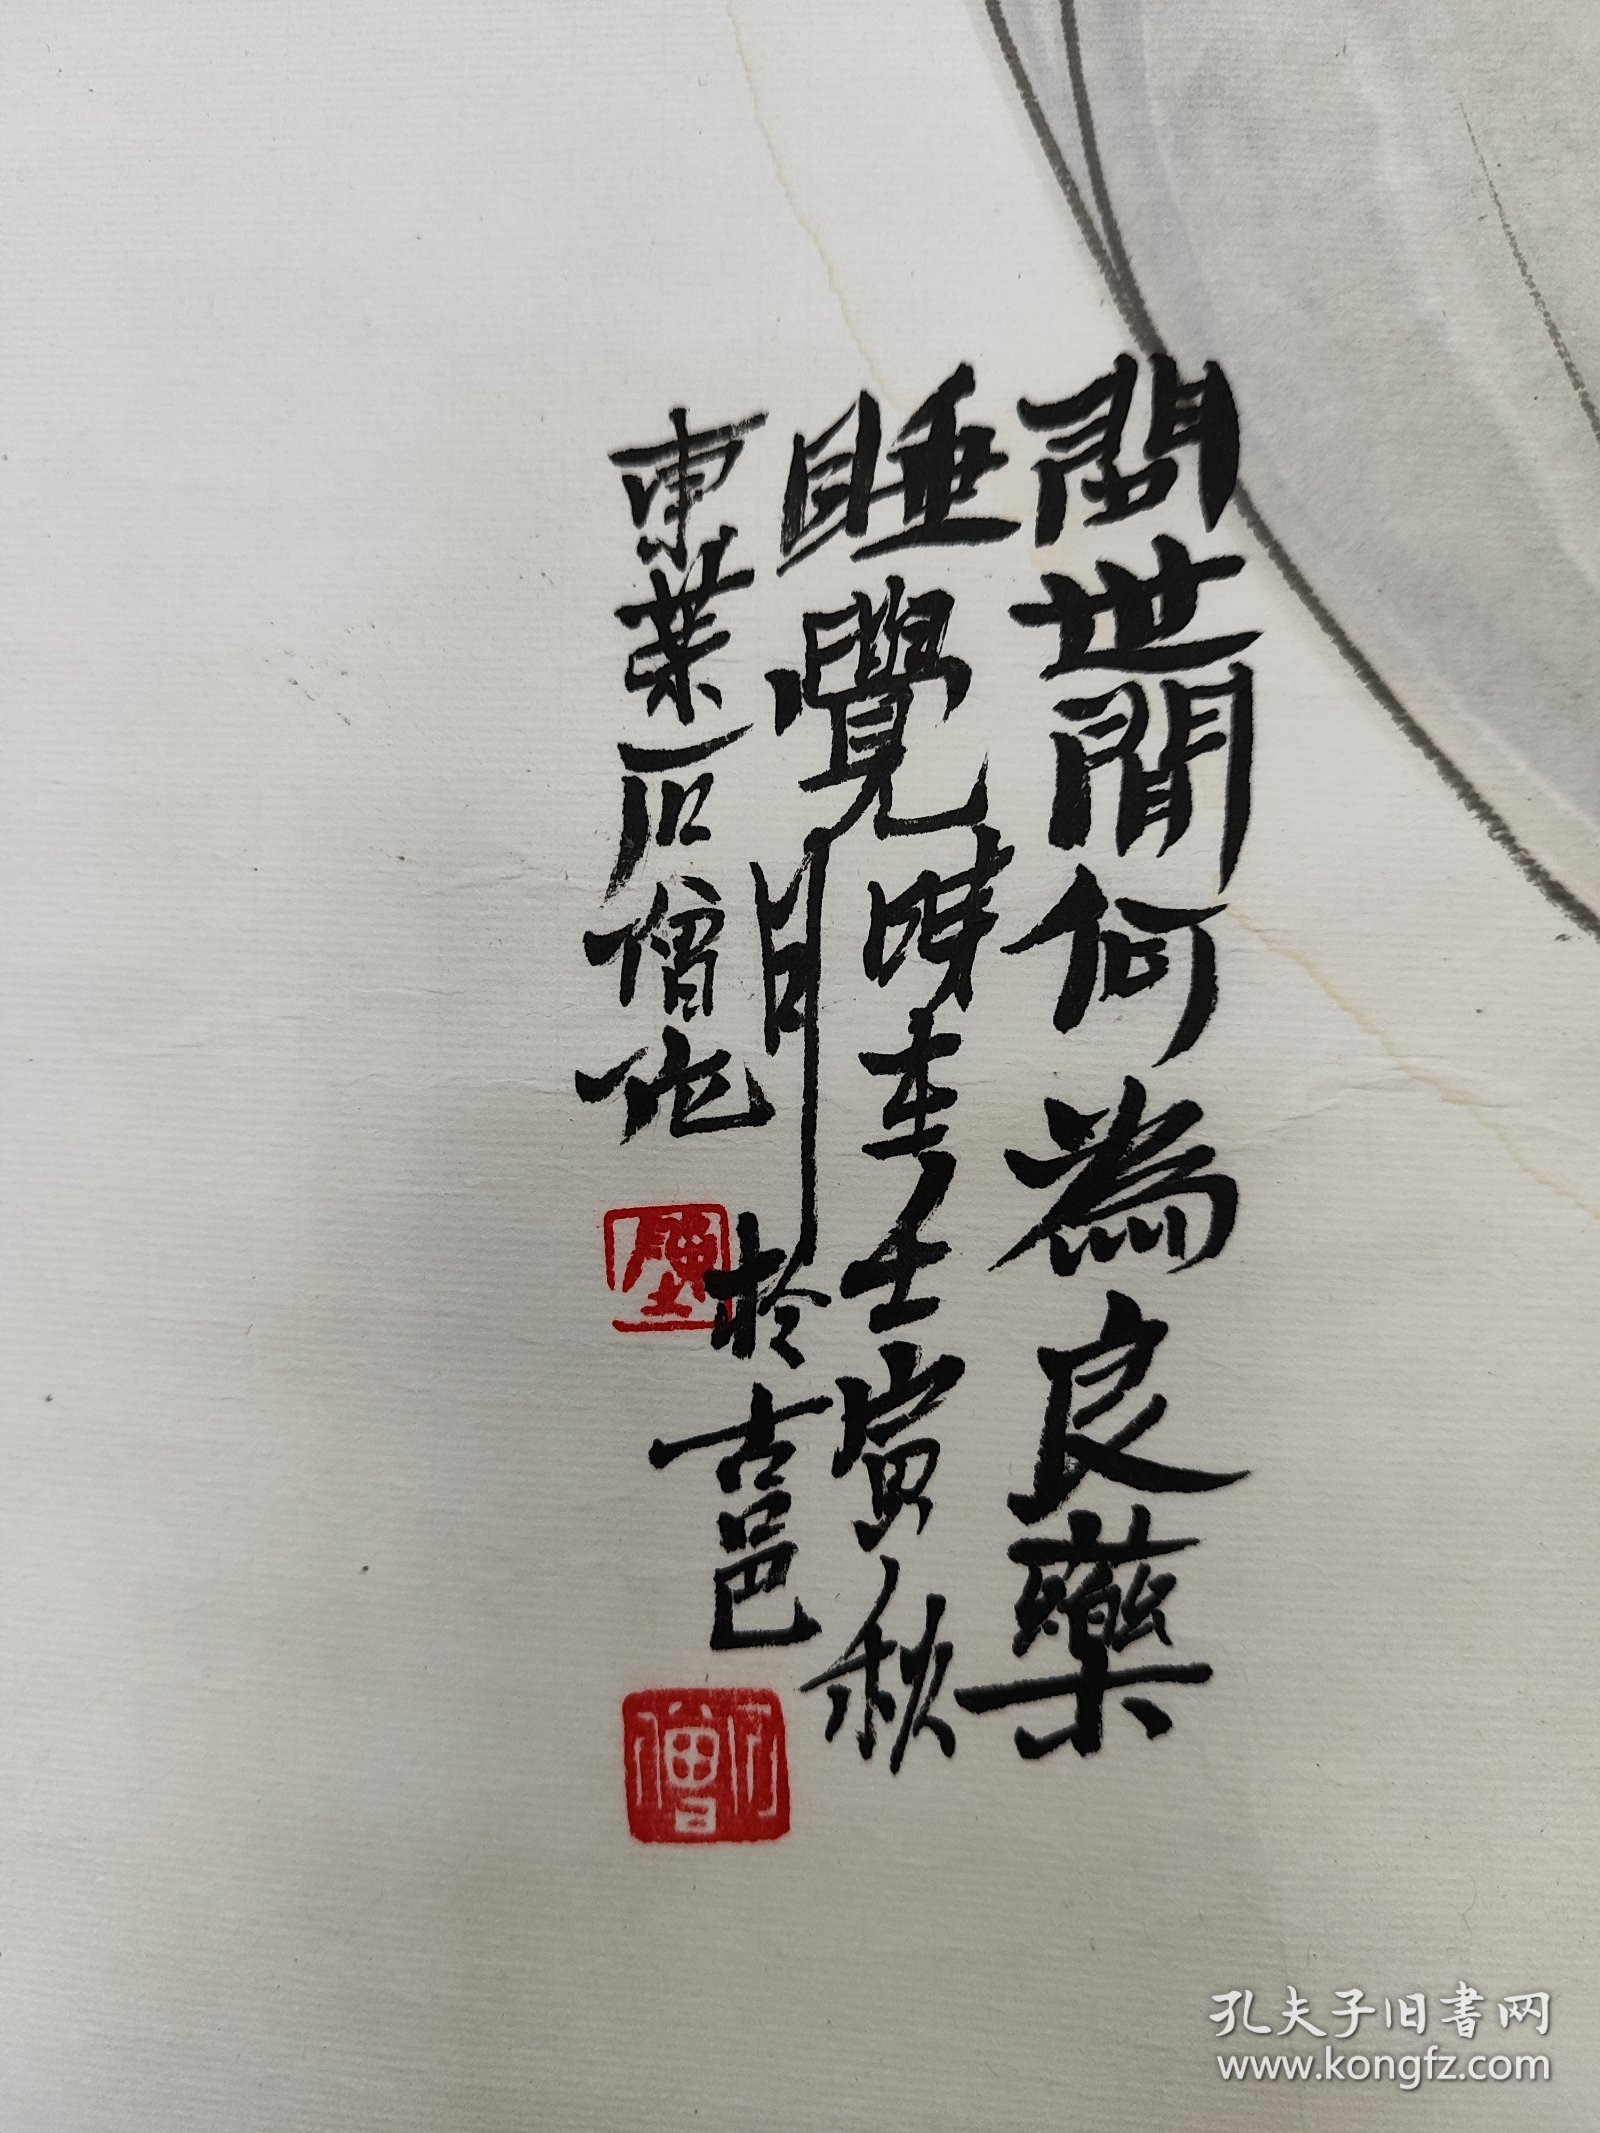 問世間何為良藥
睡覺時在壬寅秋
月於古邑
東萊石僧作
石僧
孔夫子旧书网
www.kongfz.com